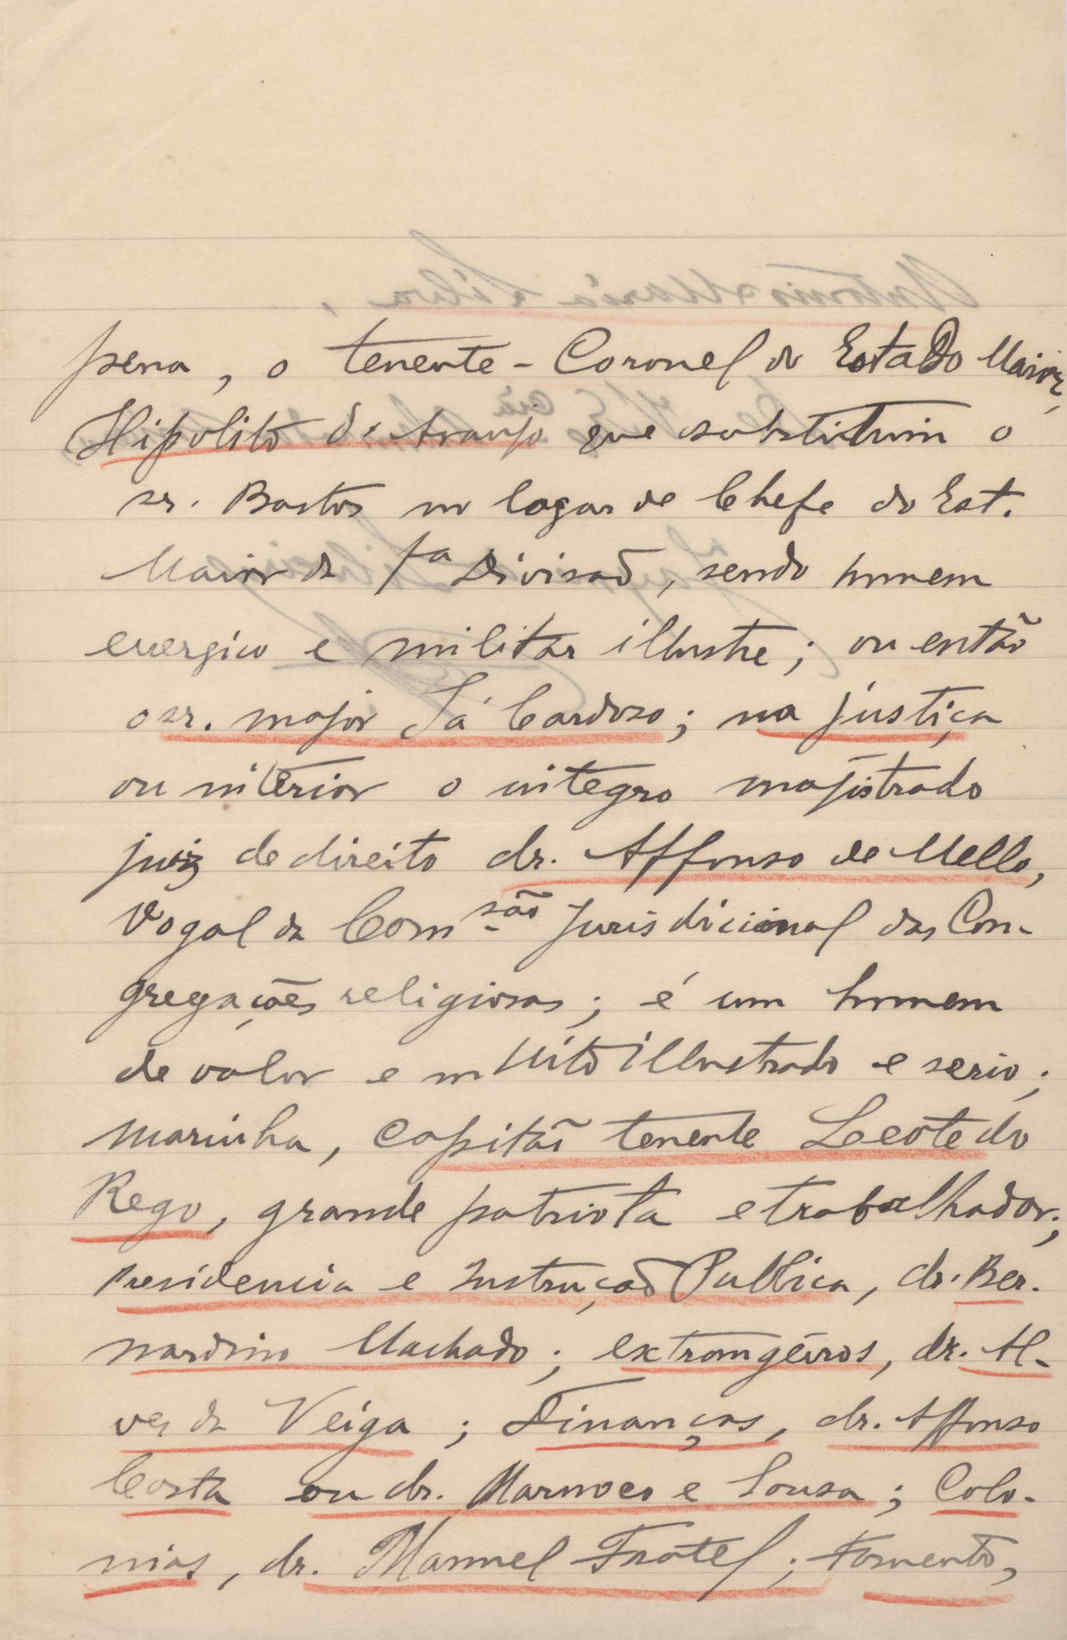 pena, o tenente-Coronel do Estado Maior,
Hipolito de Araujo que substituiu o
sr. Bastos no logar de Chefe do Est.
Maior da 1ª Divisaõ, sendo homem
energico e militar illustre; ou então
o sr. major Sá Cardozo; na justiça
ou interior o integro magistrado
juiz de direito dr. Affonso de Mello,
Vogal da Com.são Jurisdicional das Con-
gregações religiosas; é um homem
de valor e muito illustrado e serio;
marinha, capitão tenente Leote do
Rego, grande patriota e trabalhador;
Presidencia e Instruçaõ Publica, dr. Ber-
nardino Machado; extrangeiros, dr. Al-
ves da Veiga; Finanças, dr. Affonso
Costa ou dr. Marnoco e Sousa; Colo-
nias, dr. Manuel Fratel; Fomento,